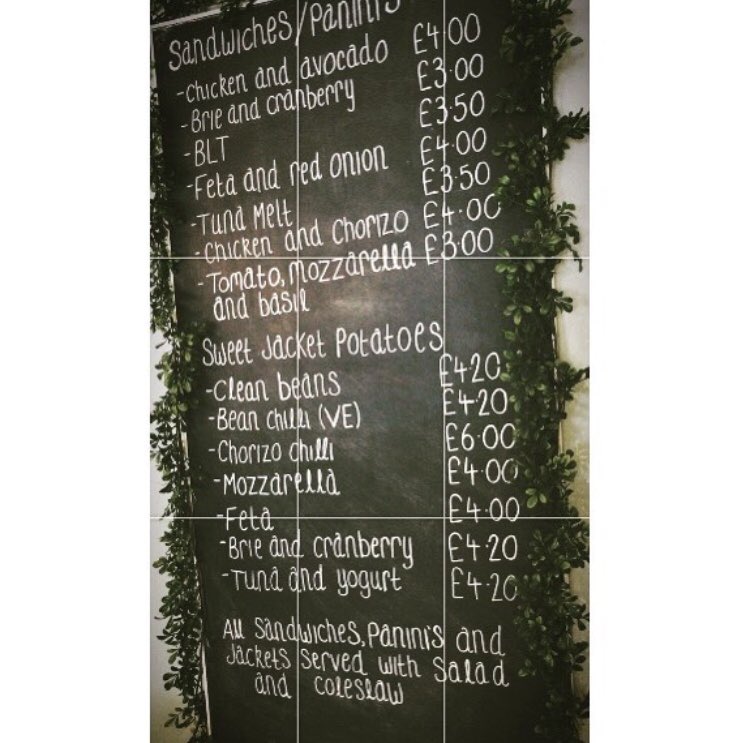 Sandwiches/Panini's
-Chicken and avocado £4.00
-Brie and cranberry £3.00
-BLT £3.50
-Feta and red onion £4.00
-Tuna Melt £3.50
-Chicken and Chorizo £4.00
-Tomato, Mozzarella £3.00
and basil
Sweet Jacket Potatoes
-Clean beans £4.20
-Bean chilli (VE) £4.20
-Chorizo chilli £6.00
-Mozzarella £4.00
-Feta £4.00
-Brie and cranberry £4.20
-Tuna and yogurt £4.20
All Sandwiches, Panini's and
Jackets Served with Salad
and coleslaw